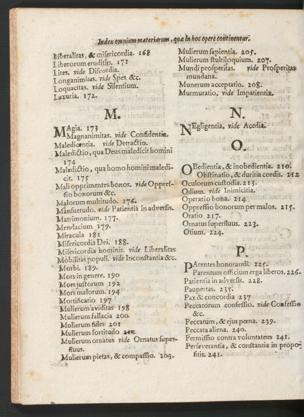 Index omnium materiarum, quæ in hoc opere continentur.
Liberalitas, & misericordia. 168
Liberorum eruditio. 171
Lites. vide Discordia.
Longanimitas. vide Spes &c.
Loquacitas. vide Silentium.
Luxuria. 172.
M.
MAgia. 173
Magnanimitas. vide Confidentia.
Maledicentia. vide Detractio.
Maledictio, qua Deus maledicit homini
174
Maledictio, qua homo homini maledi-
cit. 175
Mali opprimentes bonos. vide Oppres-
sio bonorum &c.
Malorum multitudo. 176.
Mansuetudo. vide Patientia in adversis.
Matrimonium. 177.
Mendacium. 179.
Miracula 181
Misericordia Dei. 188.
Misericordia hominis. vide Liberalitas
Mobilitas populi. vide Inconstantia &c.
Morbi. 189.
Mors in genere. 190
Mors justorum. 192
Mors malorum. 194
Mortificatio. 197
Mulierum aviditas 198
Mulierum fallacia 200
Mulierum fides 201
Mulierum fortitudo
Mulierum ornatus vide Ornatus super-
fluus.
Mulierum pietas, & compassio. 203.
Mulierum sapientia. 205.
Mulierum stultiloquium. 207.
Mundi prosperitas. vide Prosperitas
mundana.
Munerum acceptatio. 208.
Murmuratio, vide Impatientia.
N.
NEgligentia, vide Acedia.
O.
OBedientia, & inobedientia. 210.
Obstinatio, & duritia cordis. 212
Oculorum custodia. 213.
Odium. vide Inimicitia.
Operatio bona. 214
Oppressio bonorum per malos. 215.
Oratio. 217.
Ornatus superfluus. 223.
Otium. 224.
P.
PArentes honorandi. 225.
Parentum officium erga liberos. 226.
Patientia in adversis. 228.
Paupertas. 235.
Pax & concordia 237
Peccatorum confessio. vide Confessio
&c.
Peccatum, & ejus pœna. 239.
Peccata aliena. 240.
Permissio contra voluntatem 241.
Perseverantia, & constantia in propo-
sito. 241.